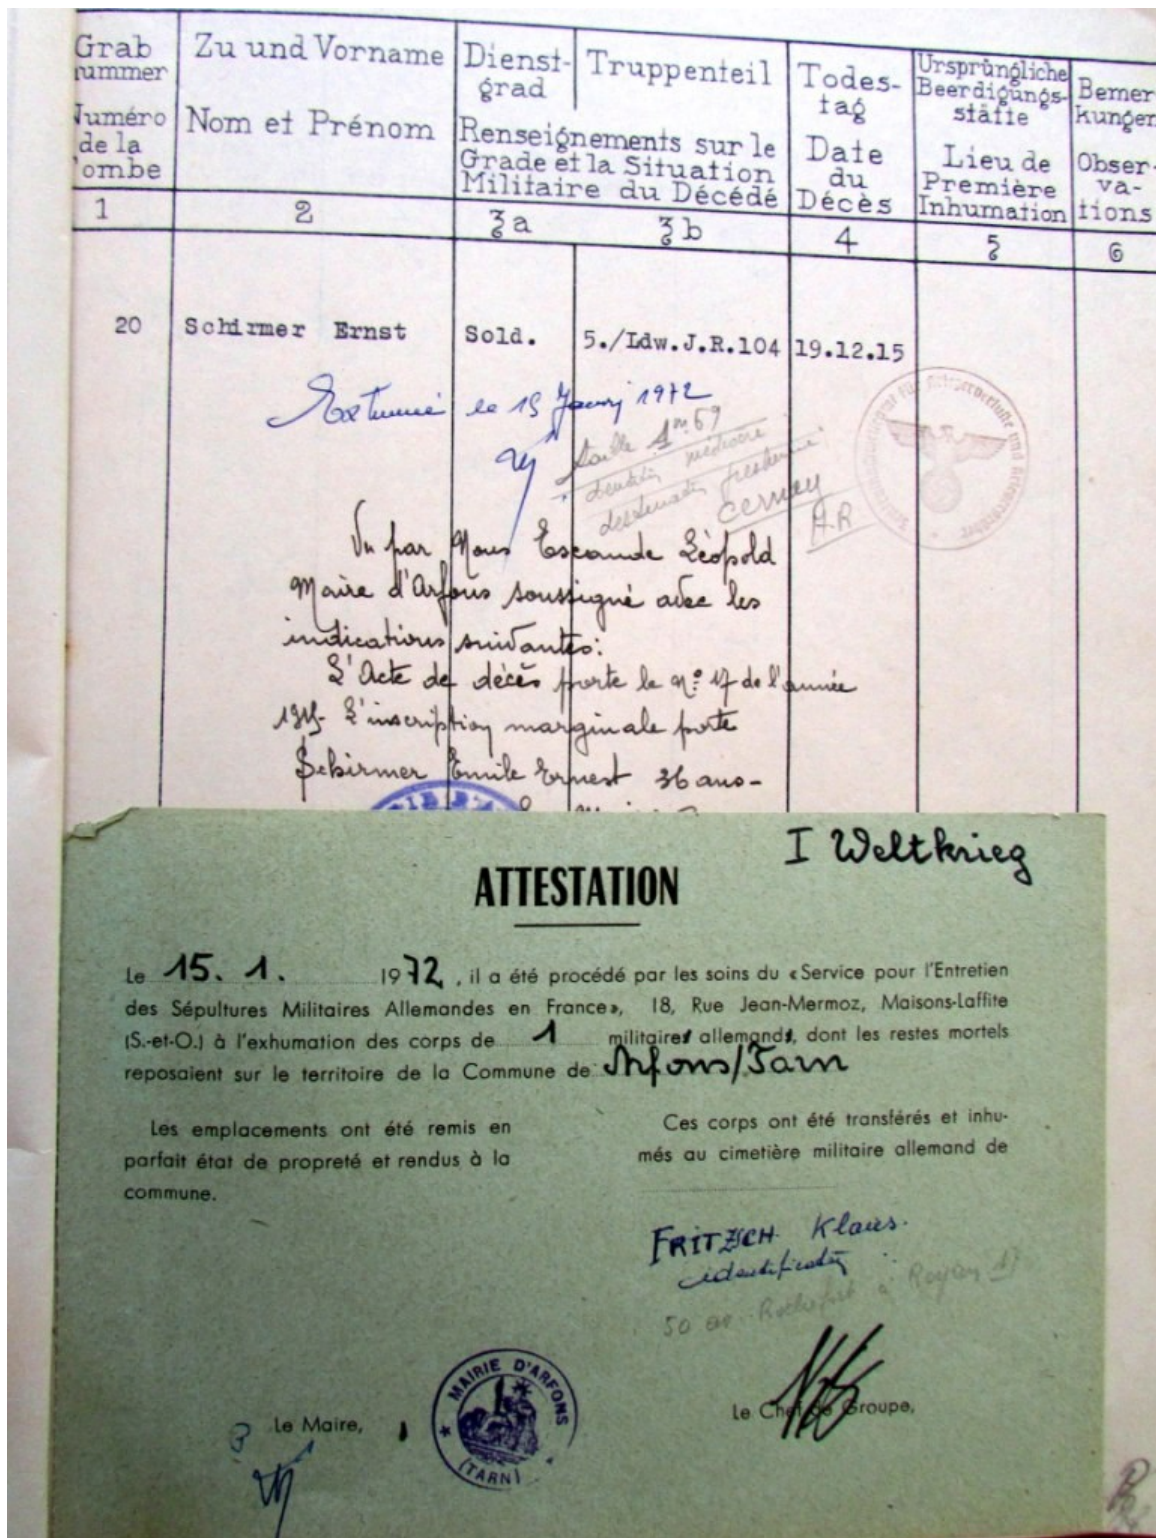 Grab
nummer
Numéro
de la
Tombe
Zu und Vorname
Nom et Prénom
Dienst-
grad
Truppenteil
Renseignements sur le
Grade et la Situation
Militaire du Décédé
Todes-
tag
Date
du
Décès
Ursprüngliche
Beerdigungs-
stätte
Lieu de
Première
Inhumation
Bemer
kungen
Obser-
va-
tions
1 2 3a 3b 4 5 6
20 Schirmer Ernst Sold. 5./Ldw.J.R.104 19.12.15
Exhumé le 15 Janvier 1972
taille 1m69
dentition médiocre
destination
cernay
A.R
Vu par Nous Escande Léopold
Maire d'Arfons soussigné avec les
indications suivantes:
L'Acte de décès porte le N° 17 de l'année
1915- L'inscription marginale porte
Schirmer Emile Ernest 36 ans-
I Weltkrieg
ATTESTATION
Le 15. 1. 1972, il a été procédé par les soins du «Service pour l'Entretien
des Sépultures Militaires Allemandes en France», 18, Rue Jean-Mermoz, Maisons-Laffite
(S.-et-O.) à l'exhumation des corps de 1 militaires allemands, dont les restes mortels
reposaient sur le territoire de la Commune de Arfons/Tarn
Les emplacements ont été remis en
parfait état de propreté et rendus à la
commune.
Ces corps ont été transférés et inhu-
més au cimetière militaire allemand de
FRITZSCH Klaus.
identification
50 av. Rochefort à Royan 17
Le Maire,
MAIRIE D'ARFONS
(TARN)
Le Chef de Groupe,